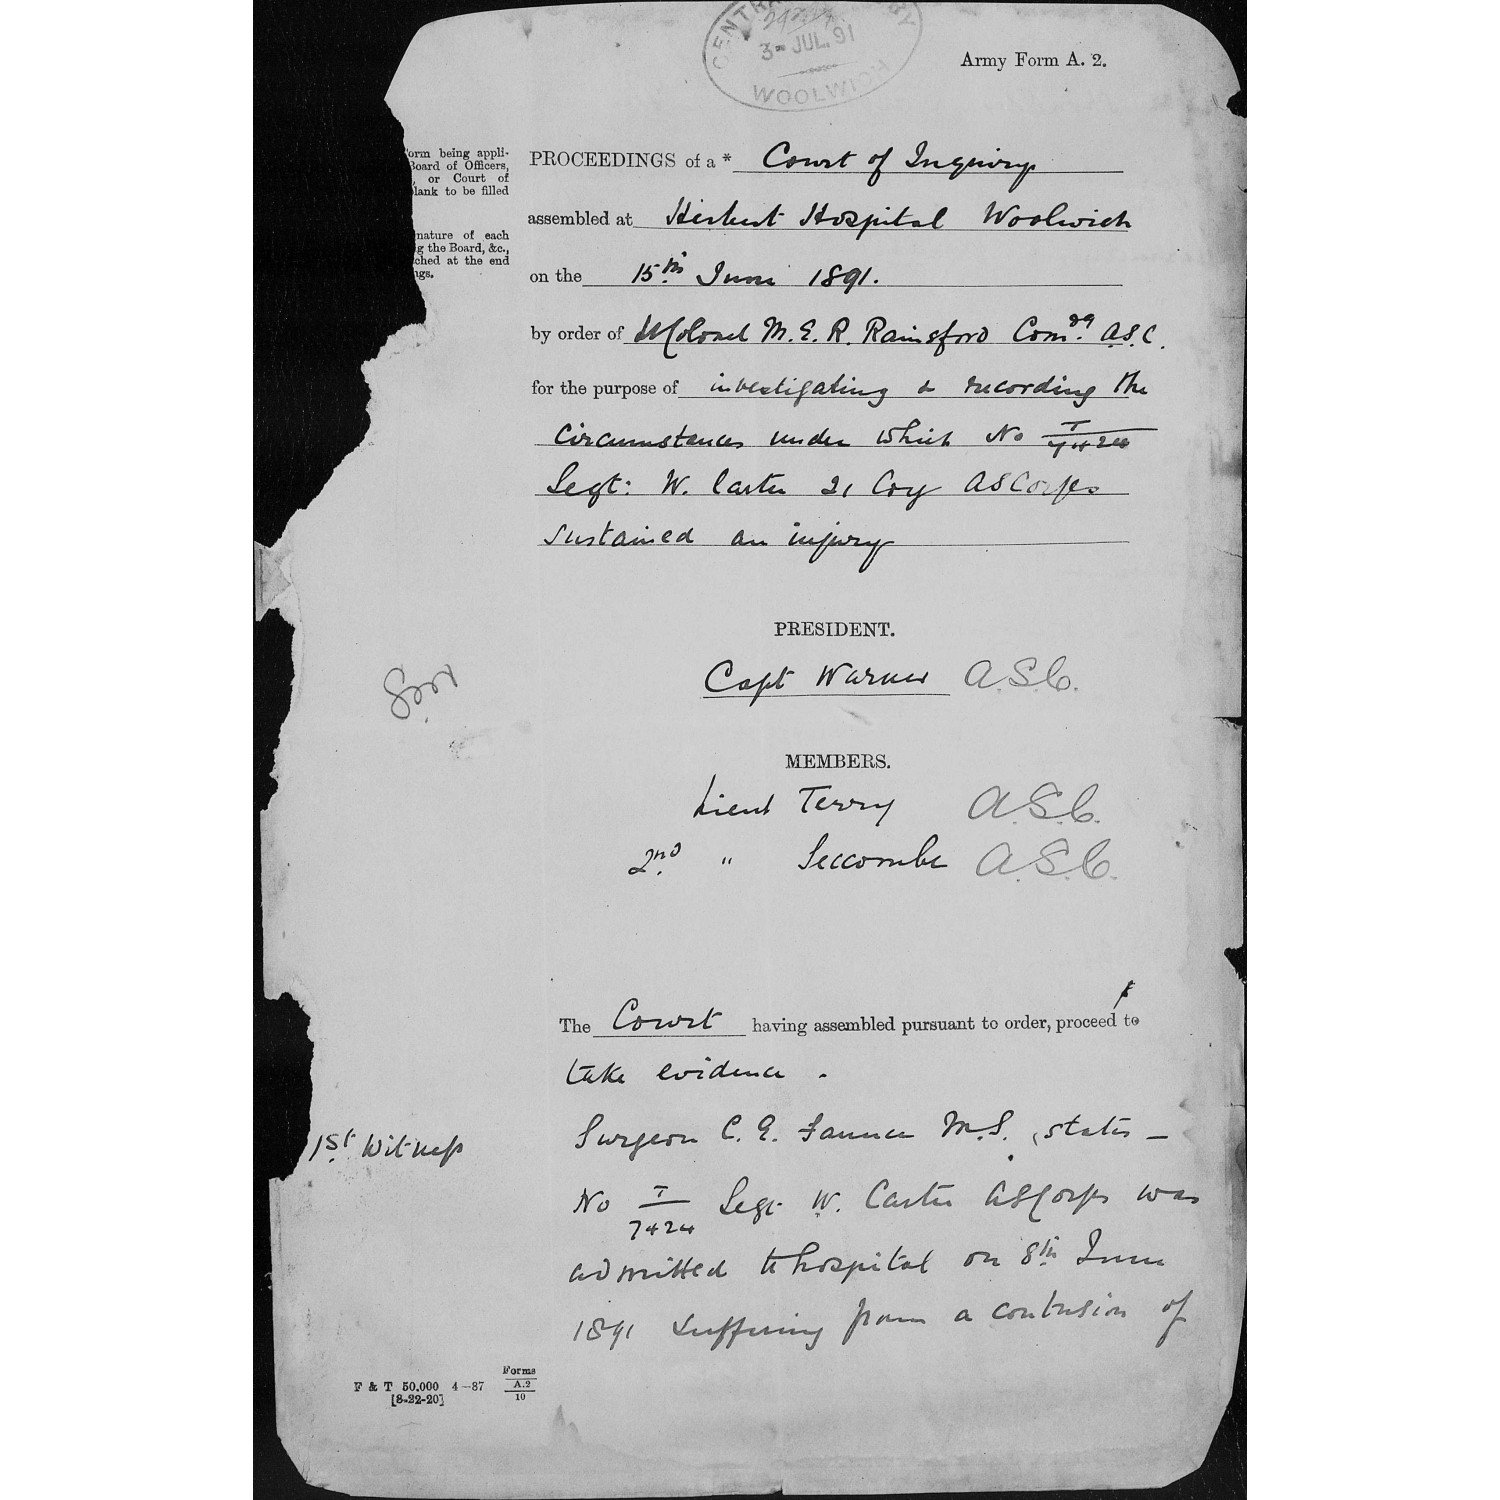 3- JUL. 91
WOOLWICH
Army Form A. 2.
orm being appli-
Board of Officers,
, or Court of
lank to be filled
nature of each
g the Board, &c.,
ched at the end
ngs.
PROCEEDINGS of a * Court of Inquiry
assembled at Herbert Hospital Woolwich
on the 15th June 1891.
by order of Lt Colonel M. E. R. Rainsford Comdg A.S.C.
for the purpose of investigating & recording the
circumstances under which No T/7424
Sergt: W. Carter 21 Coy ASCorps
sustained an injury
PRESIDENT.
Capt Warner A.S.C.
MEMBERS.
Lieut Terry A.S.C.
2nd " Seccombe A.S.C.
The Court having assembled pursuant to order, proceed to
take evidence.
1st Witness
Surgeon C. E. M.S. states –
No T/7424 Sergt W. Carter ASCorps was
admitted to hospital on 8th June
1891 suffering from a contusion of
F & T 50,000 4–87
[8-22-20]
Forms
A.2
10